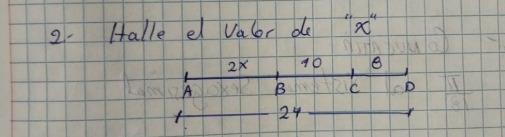 2- Halle el valor de "x"
2x 10 8
A B C D
24